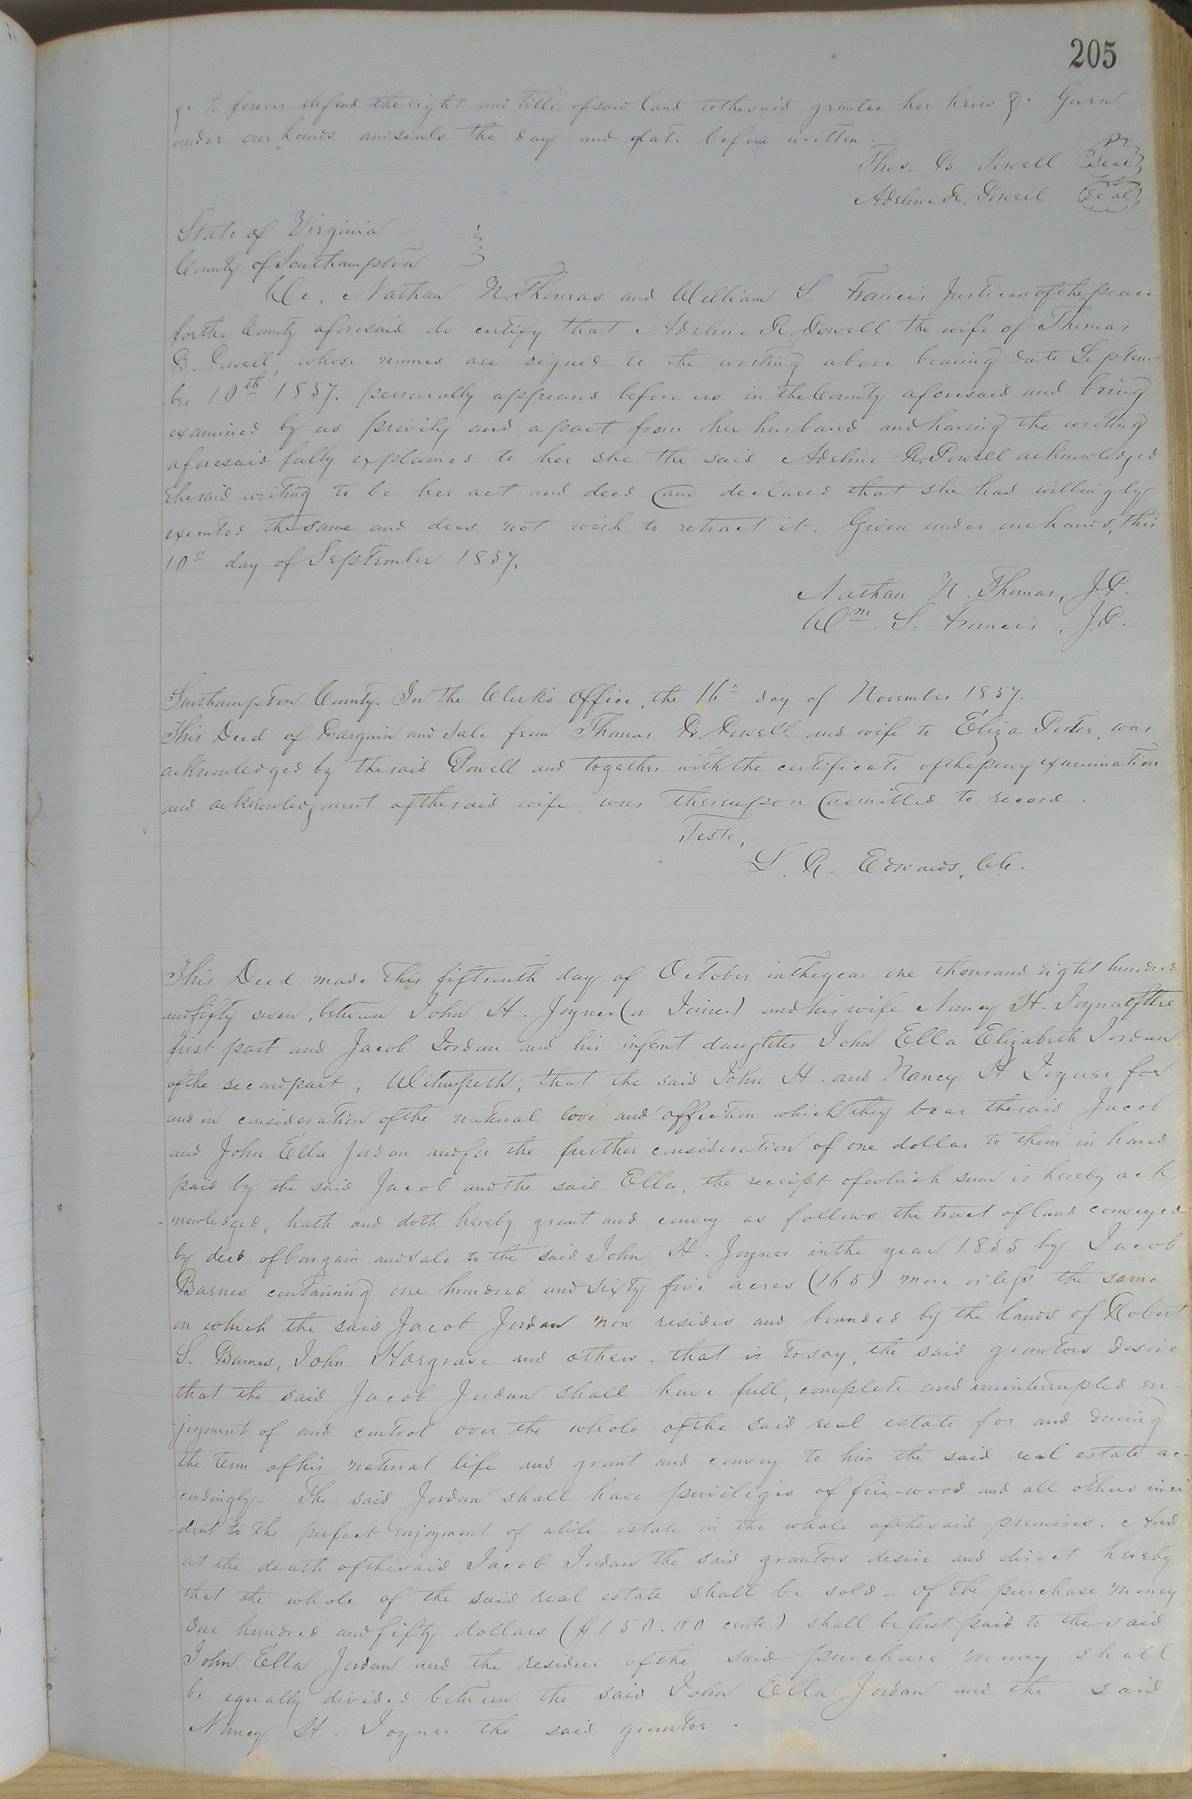 205
&c to forever defend the right and title of said land to the said grantee her heirs &c. Given
under our hands and seals the day and date before written.
Thos. B. Powell Seal
Adeline R. Powell Seal
State of Virginia
County of Southampton
We, Nathan N. Thomas and William S. Francis Justices of the peace
for the County aforesaid do certify that Adeline R. Powell the wife of Thomas
B. Powell, whose names are signed to the writing above bearing date Septem-
ber 10th 1857. personally appeared before us in the County aforesaid and being
examined by us privily and apart from her husband and having the writing
aforesaid fully explained to her she the said Adeline R. Powell acknowledged
the said writing to be her act and deed and declared that she had willingly
executed the same and does not wish to retract it. Given under our hands, this
10th day of September 1857.
Nathan N. Thomas, J.P.
Wm. S. Francis, J.P.
Southampton County. In the Clerk's Office, the 16th day of November 1857.
This Deed of Bargain and Sale from Thomas B. Powell and wife to Eliza Porter, was
acknowledged by the said Powell and together with the certificate of the privy examination
and acknowledgment of the said wife was thereupon admitted to record.
Teste,
L. R. Edwards, C.C.
This Deed made this fifteenth day of October in the year one thousand eight hundred
and fifty seven, between John H. Joyner (a Joiner) and his wife Nancy H. Joyner of the
first part and Jacob Jordan and his infant daughter John Ella Elizabeth Jordan
of the second part, Witnesseth; that the said John H. and Nancy H Joyner for
and in consideration of the natural love and affection which they bear the said Jacob
and John Ella Jordan and for the further consideration of one dollar to them in hand
paid by the said Jacob and the said Ella, the receipt of which sum is hereby ack-
-nowledged, hath and doth hereby grant and convey as follows the tract of land conveyed
by deed of bargain and sale to the said John H. Joyner in the year 1855 by Jacob
Barnes containing one hundred and sixty five acres (165) more or less the same
on which the said Jacob Jordan now resides and bounded by the lands of Robert
S. Barnes, John Hargrave and others. that is to say, the said grantors desire
that the said Jacob Jordan shall have full, complete and uninterrupted en-
-joyment of and control over the whole of the said real estate for and during
the term of his natural life and grant and convey to him the said real estate ac-
-cordingly. The said Jordan shall have privileges of fire-wood and all others inci-
-dent to the perfect enjoyment of a life estate in the whole of the said premises. And
at the death of the said Jacob Jordan the said grantors desire and direct hereby
that the whole of the said real estate shall be sold - of the purchase money
one hundred and fifty dollars ($150.00 cents) shall be first paid to the said
John Ella Jordan and the residue of the said purchase money shall
be equally divided between the said John Ella Jordan and the said
Nancy H. Joyner the said grantor.